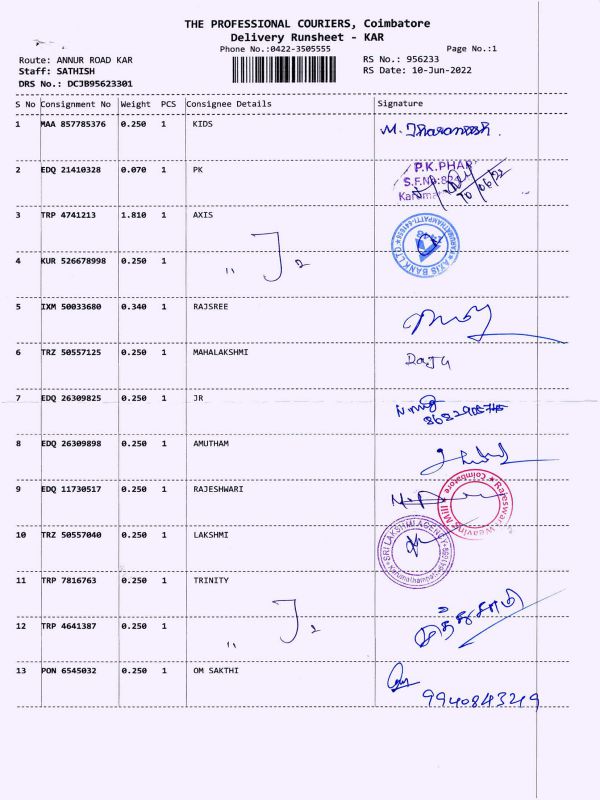 THE PROFESSIONAL COURIERS, Coimbatore
Delivery Runsheet - KAR
Phone No.:0422-3505555 Page No.:1
Route: ANNUR ROAD KAR RS No.: 956233
Staff: SATHISH RS Date: 10-Jun-2022
DRS No.: DCJB95623301
S No Consignment No Weight PCS Consignee Details Signature
1 MAA 857785376 0.250 1 KIDS
2 EDQ 21410328 0.070 1 PK
P.K.PHAR
S.F.No:
10/06/22
3 TRP 4741213 1.810 1 AXIS
AXIS BANK LTD
4 KUR 526678998 0.250 1
" 2
5 IXM 50033680 0.340 1 RAJSREE
6 TRZ 50557125 0.250 1 MAHALAKSHMI
7 EDQ 26309825 0.250 1 JR
8 EDQ 26309898 0.250 1 AMUTHAM
9 EDQ 11730517 0.250 1 RAJESHWARI
Rajeswari Weaving Mill Coimbatore
10 TRZ 50557040 0.250 1 LAKSHMI
SRI LAKSHMI AGENCY
11 TRP 7816763 0.250 1 TRINITY
12 TRP 4641387 0.250 1
" 2
13 PON 6545032 0.250 1 OM SAKTHI
9940843249